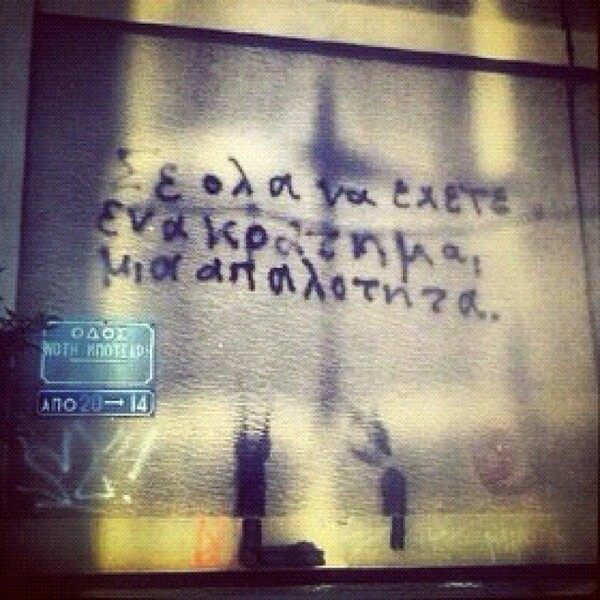 Σε όλα να έχετε
ένα κράτημα,
μια απαλότητα.
ΟΔΟΣ
ΝΟΤΗ ΜΠΟΤΣΑΡΗ
ΑΠΟ 20→14